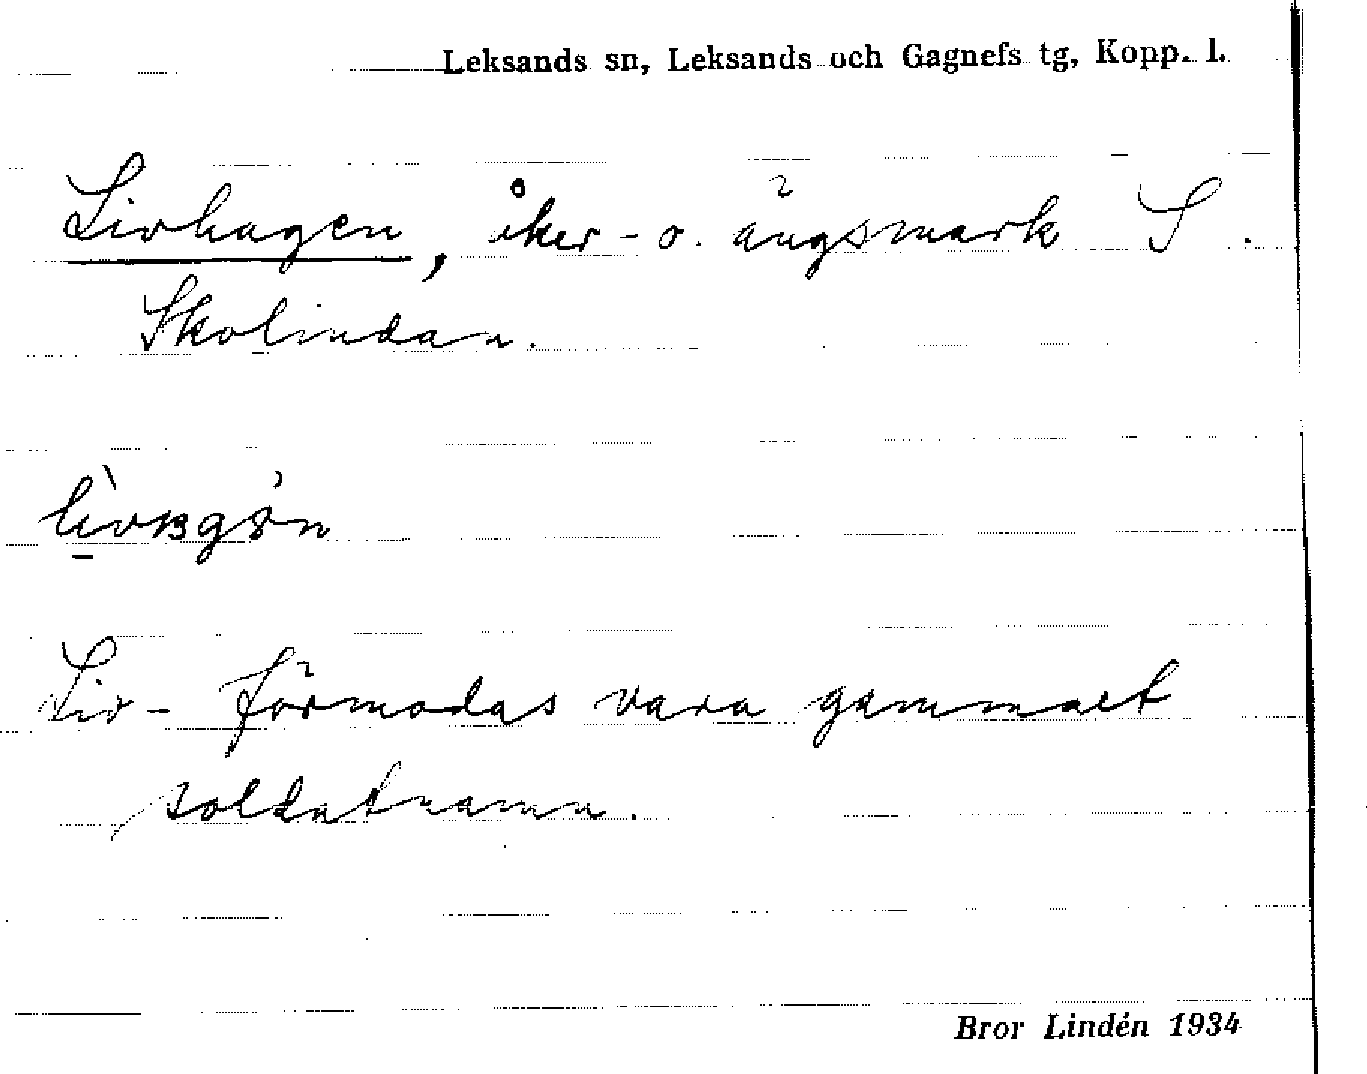 Leksands sn, Leksands och Gagnefs tg, Kopp. l.
Livhagen, åker- o. ängsmark S.
Skolindan.
Liv- förmodas vara gammalt
soldatnamn.
Bror Lindén 1934